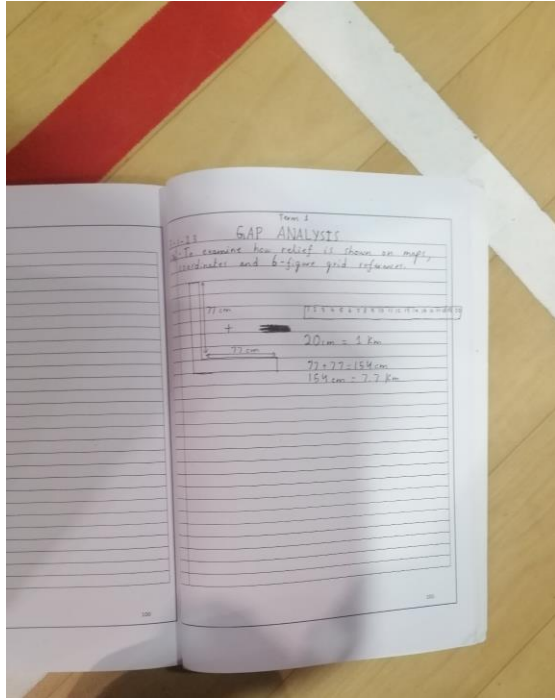 Term 1
GAP ANALYSIS
To examine how relief is shown on maps,
coordinates and 6-figure grid references.
77 cm
+
77 cm
20cm = 1 Km
77 + 77 = 154 cm
154 cm = 7.7 Km